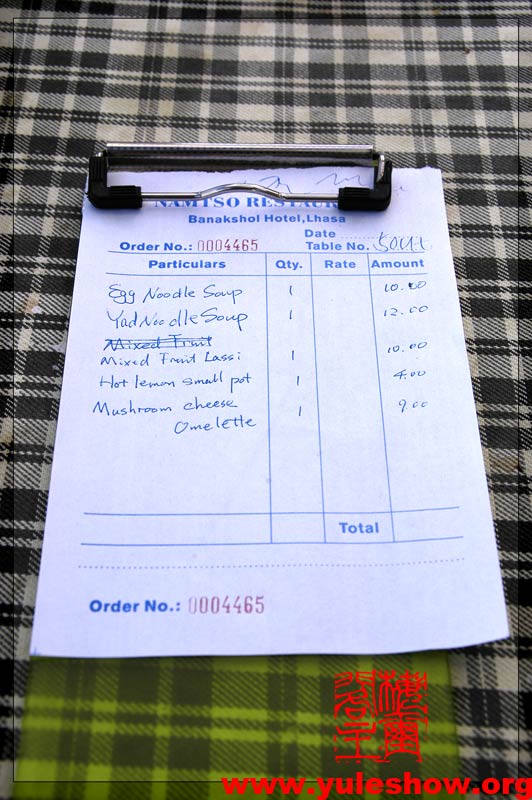 NAMTSO RESTAURANT
Banakshol Hotel,Lhasa
Date
Order No.: 0004465 Table No. South
Particulars Qty. Rate Amount
Egg Noodle Soup 1 10.00
Yad Noodle Soup 1 12.00
Mixed Fruit
Mixed Fruit Lassi 1 10.00
Hot lemon small pot 1 4.00
Mushroom cheese 1 9.00
Omelette
Total
Order No.: 0004465
www.yuleshow.org